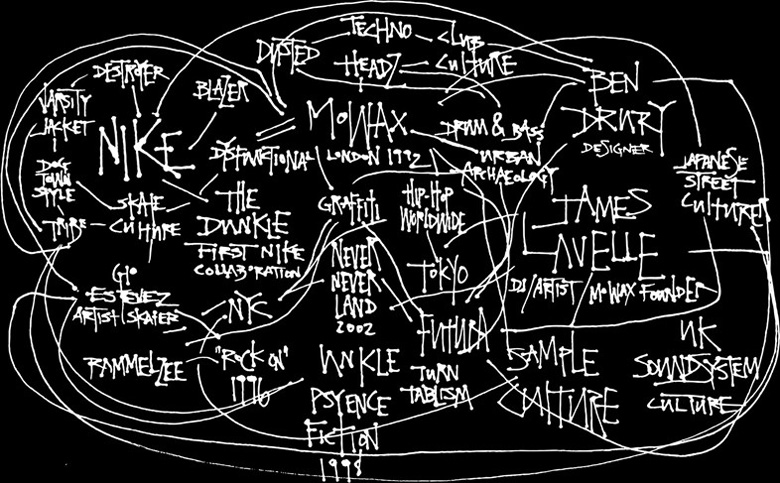 TECHNO
CLUB
CULTURE
DUSTED
HEADZ
DESTROYER
BLAZER
BEN
DRURY
DESIGNER
VARSITY
JACKET
NIKE
MO WAX
LONDON 1992
DRUM & BASS
URBAN
ARCHAEOLOGY
DYSFUNCTIONAL
JAPANESE
STREET
CULTURE
DOG
TOWN
STYLE
SKATE
CULTURE
TRIBE
THE
DUNKLE
FIRST NIKE
COLLABORATION
GRAFFITI
HIP-HOP
WORLDWIDE
JAMES
LAVELLE
DJ/ARTIST MOWAX FOUNDER
NEVER
NEVER
LAND
2002
TOKYO
GIO
ESTEVEZ
ARTIST/SKATER
NYC
FUTURA
RAMMELZEE
"ROCK ON"
1996
UNKLE
PSYENCE
FICTION
1998
TURN
TABLISM
SAMPLE
CULTURE
UK
SOUNDSYSTEM
CULTURE